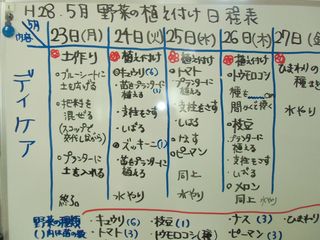 H28.5月 野菜の植え付け 日程表
5月
内容
23日(月)
24日(火)
25日(水)
26日(木)
27日(金)
デイケア
土作り
・ブルーシートに
土を広げる
・肥料を
混ぜる
(スコップで
交代しながら)
・プランターに
土を入れる
終る。
植え付け
①キュウリ(6)
・苗をプランターに
植える
・支柱をさす
・しばる
②ズッキーニ(1)
・苗をプランターに
植える
水やり
植え付け
・トマト
プランターに
植える
・支柱をさす
・しばる
・なす
・ピーマン
同上
水やり
植え付け
・トウモロコシ
種を
間かくで置く
・枝豆
プランターに
植える
・支柱をさす
・しばる
・メロン
同上 水やり
ひまわりの
種まき
水やり
野菜の種類
( )内は苗の数
・キュウリ(6)
・トマト(3)
・枝豆(1)
・トウモロコシ(種)
・ナス(3)
・ピーマン(3)
・ひまわり